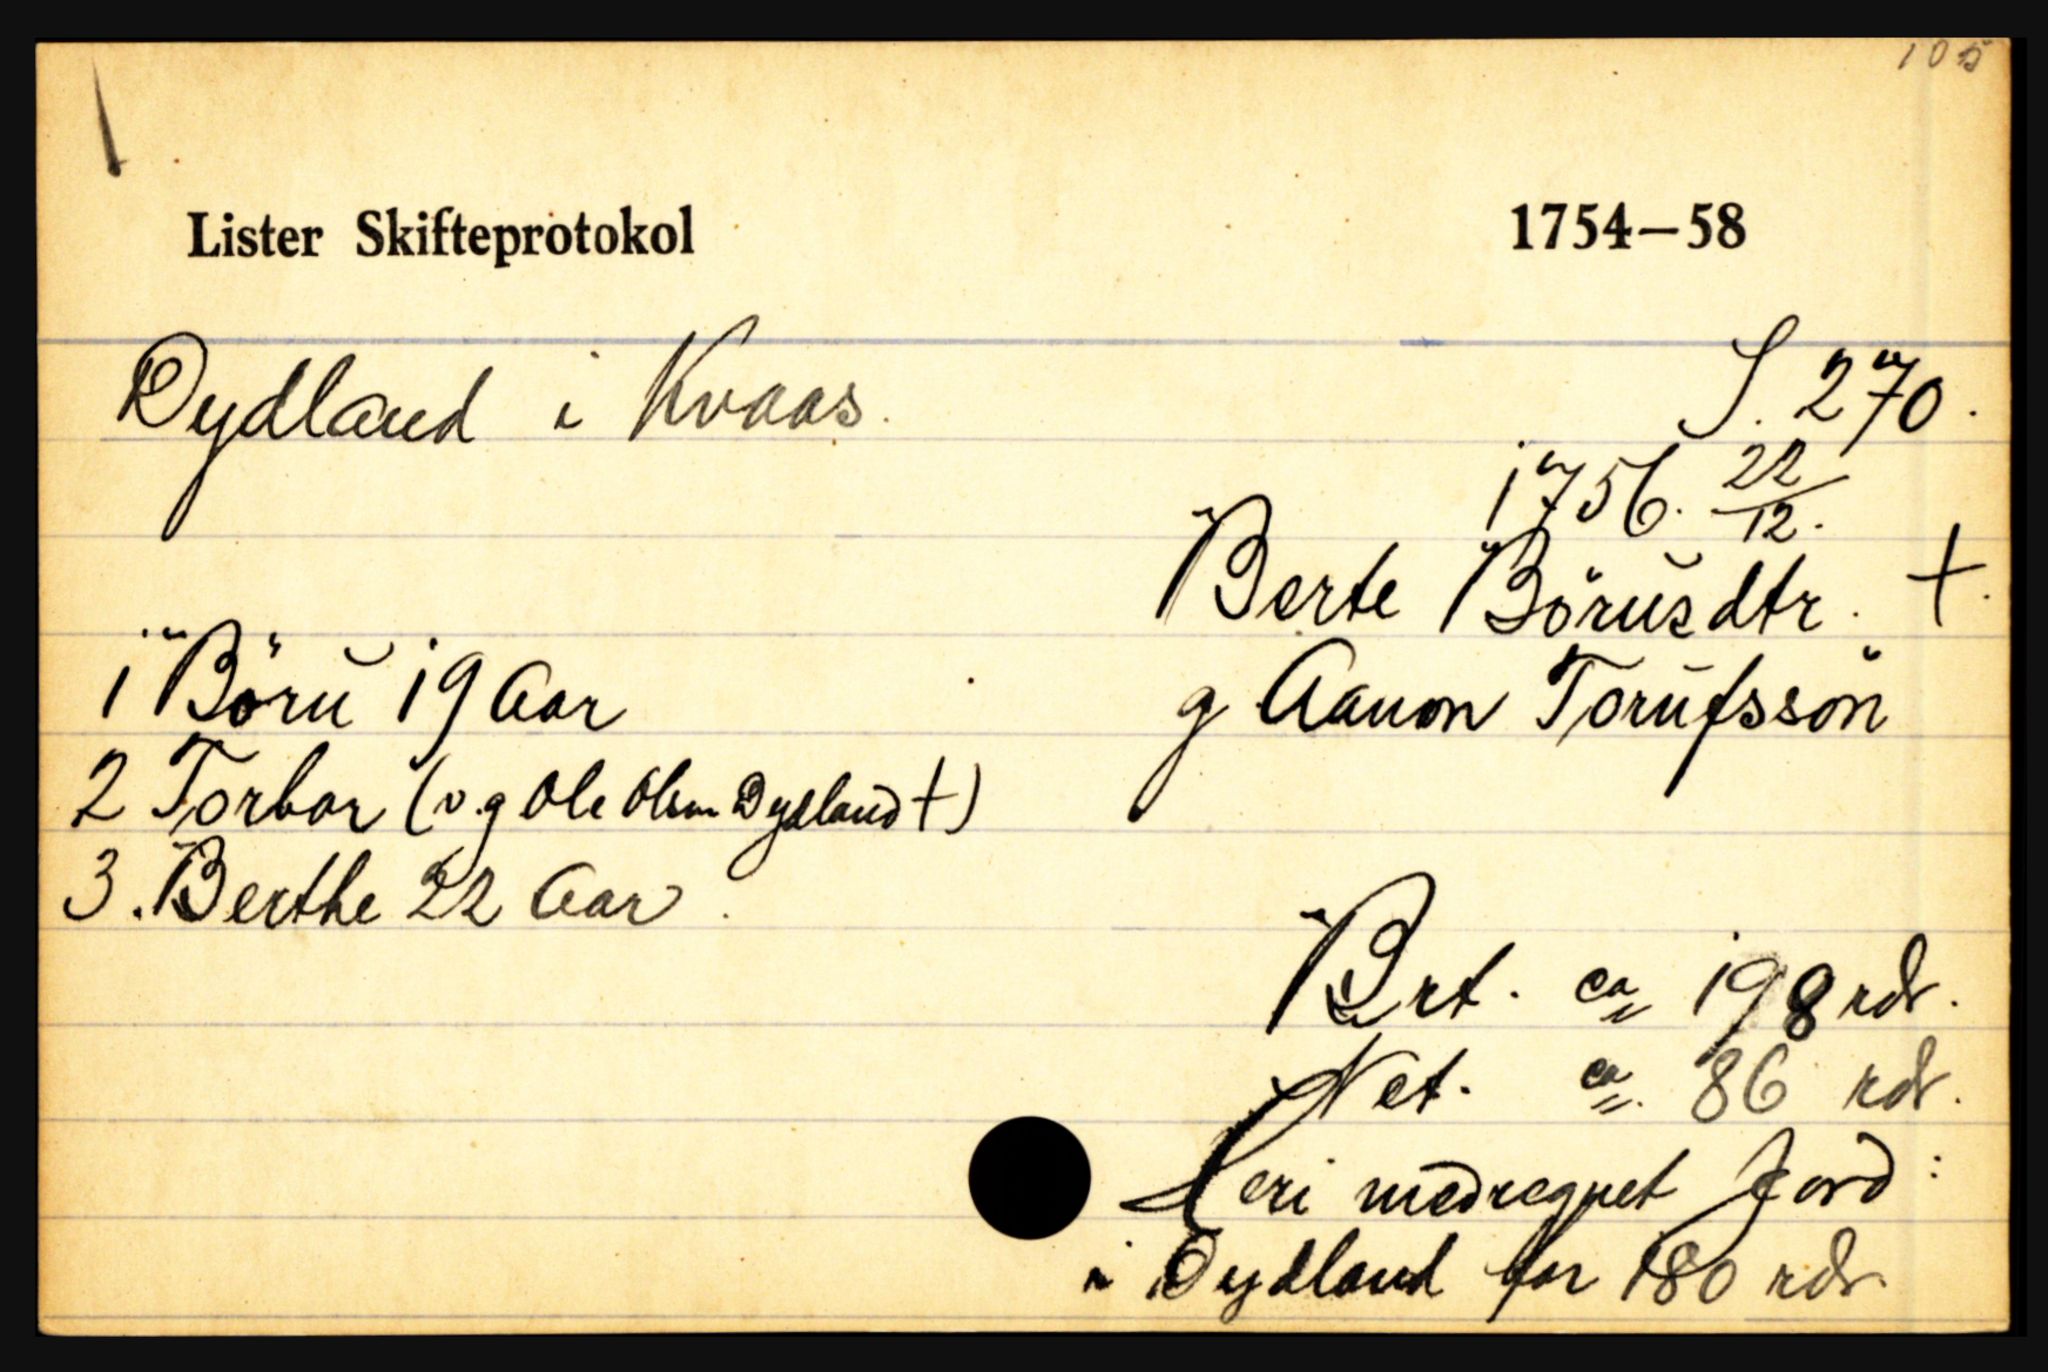 105
Lister Skifteprotokol 1754—58
Dydland i Kvaas.
S. 270.
1756. 22/12.
Berte Börŭsdtr. +.
g Aanon Torŭfssön
1 Börŭ 19 Aar
2 Torbor (v. g Ole Olsen Dydland +)
3. Berthe 22 Aar.
Brt. ca 198 rdr.
Net. ca. 86 rdr.
Heri medregnet Jord:
i Dydland for 180 rdr.